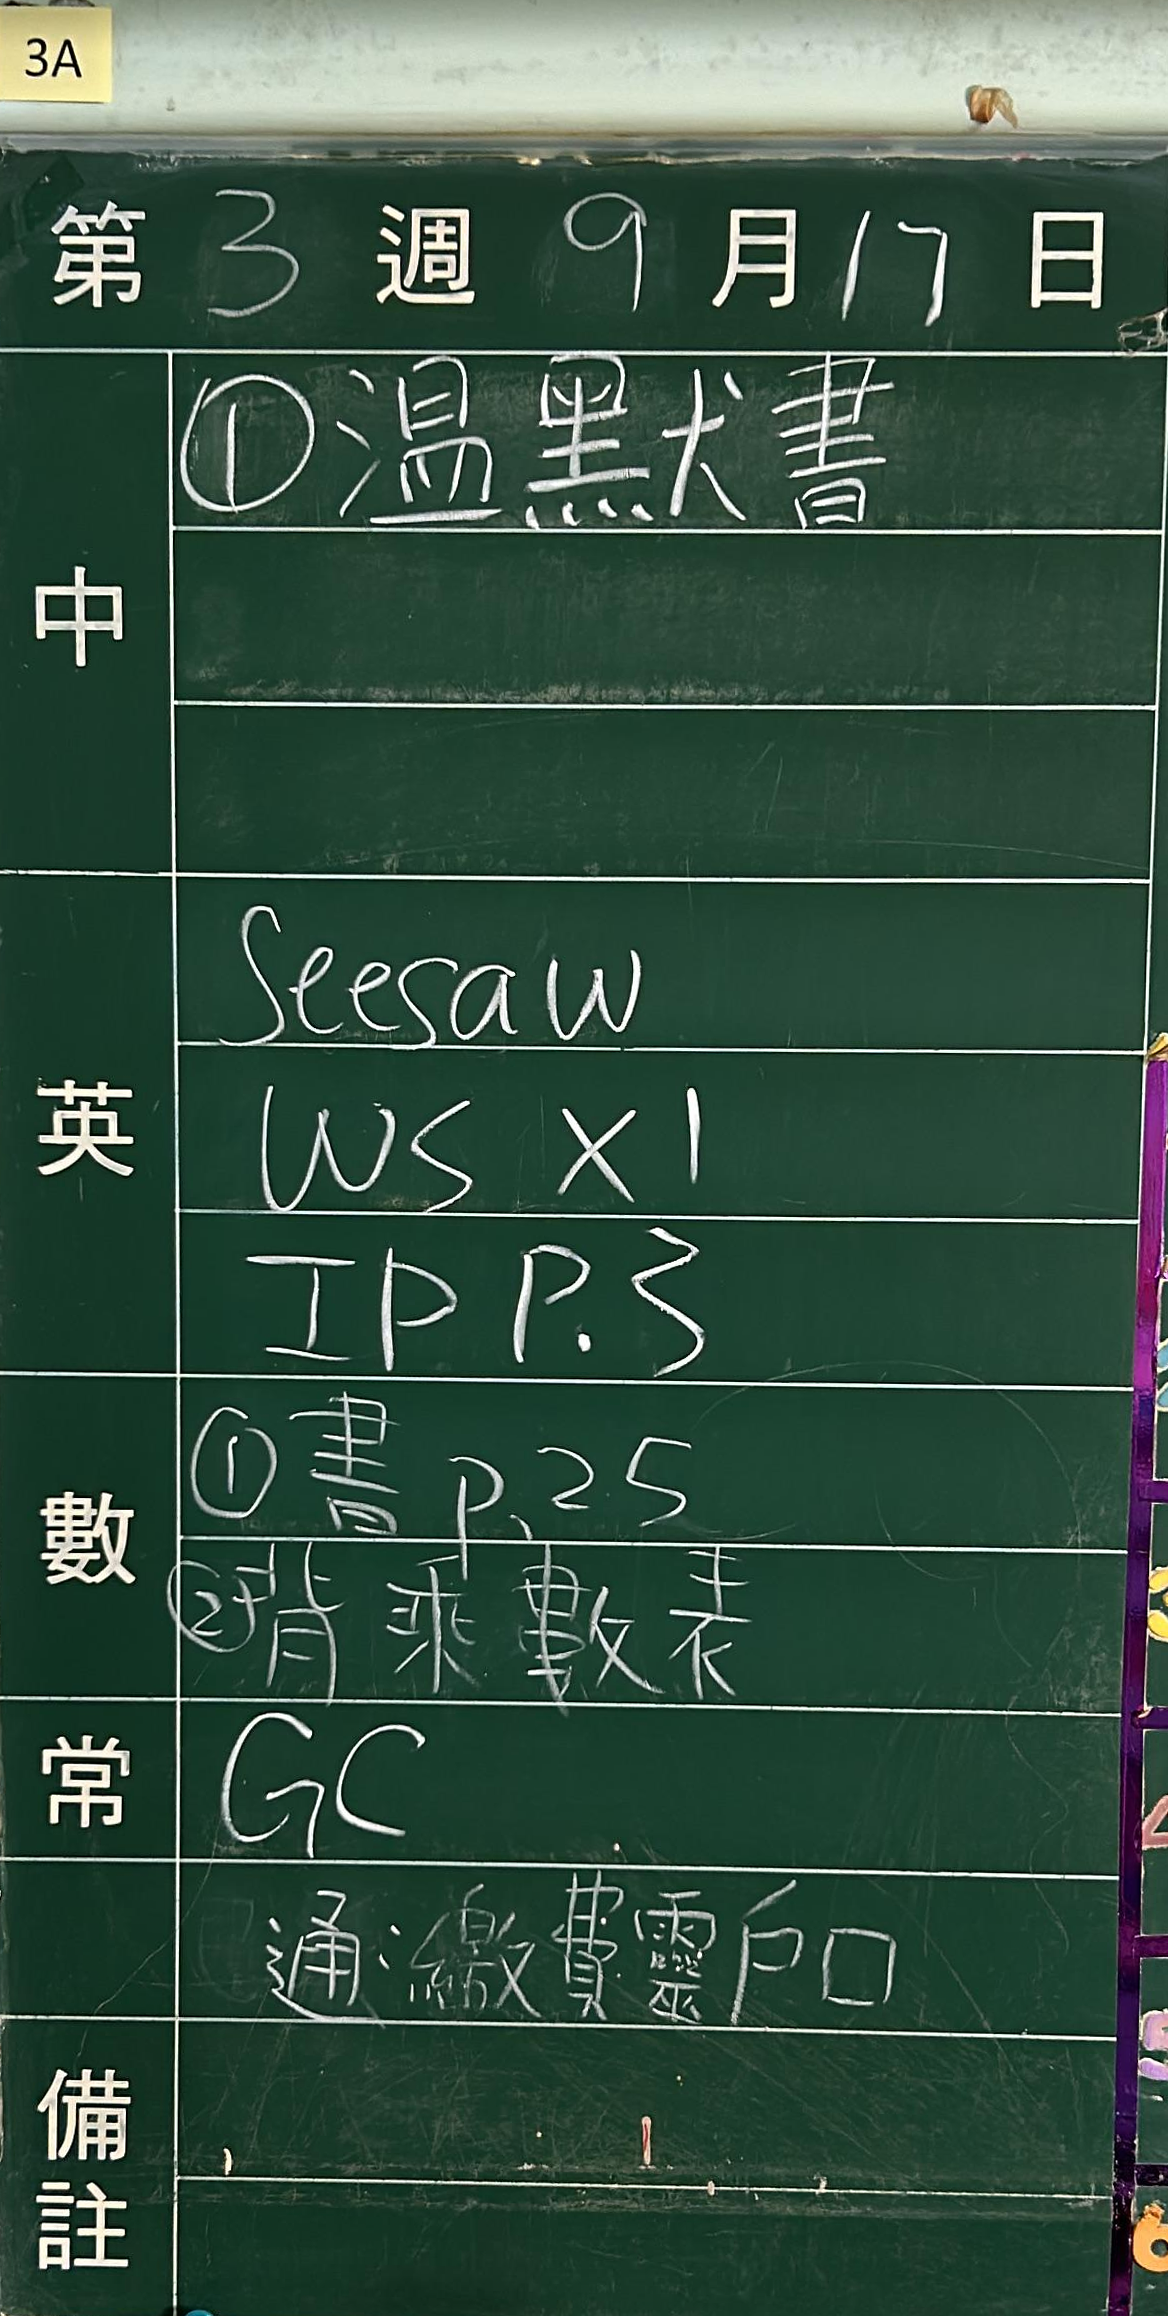 3A
第 3 週 9 月 17 日
中
①溫默書
英
Seesaw
WS X1
IP P.3
數
①書 p.25
②背乘數表
常
GC
通:繳費靈戶口
備註